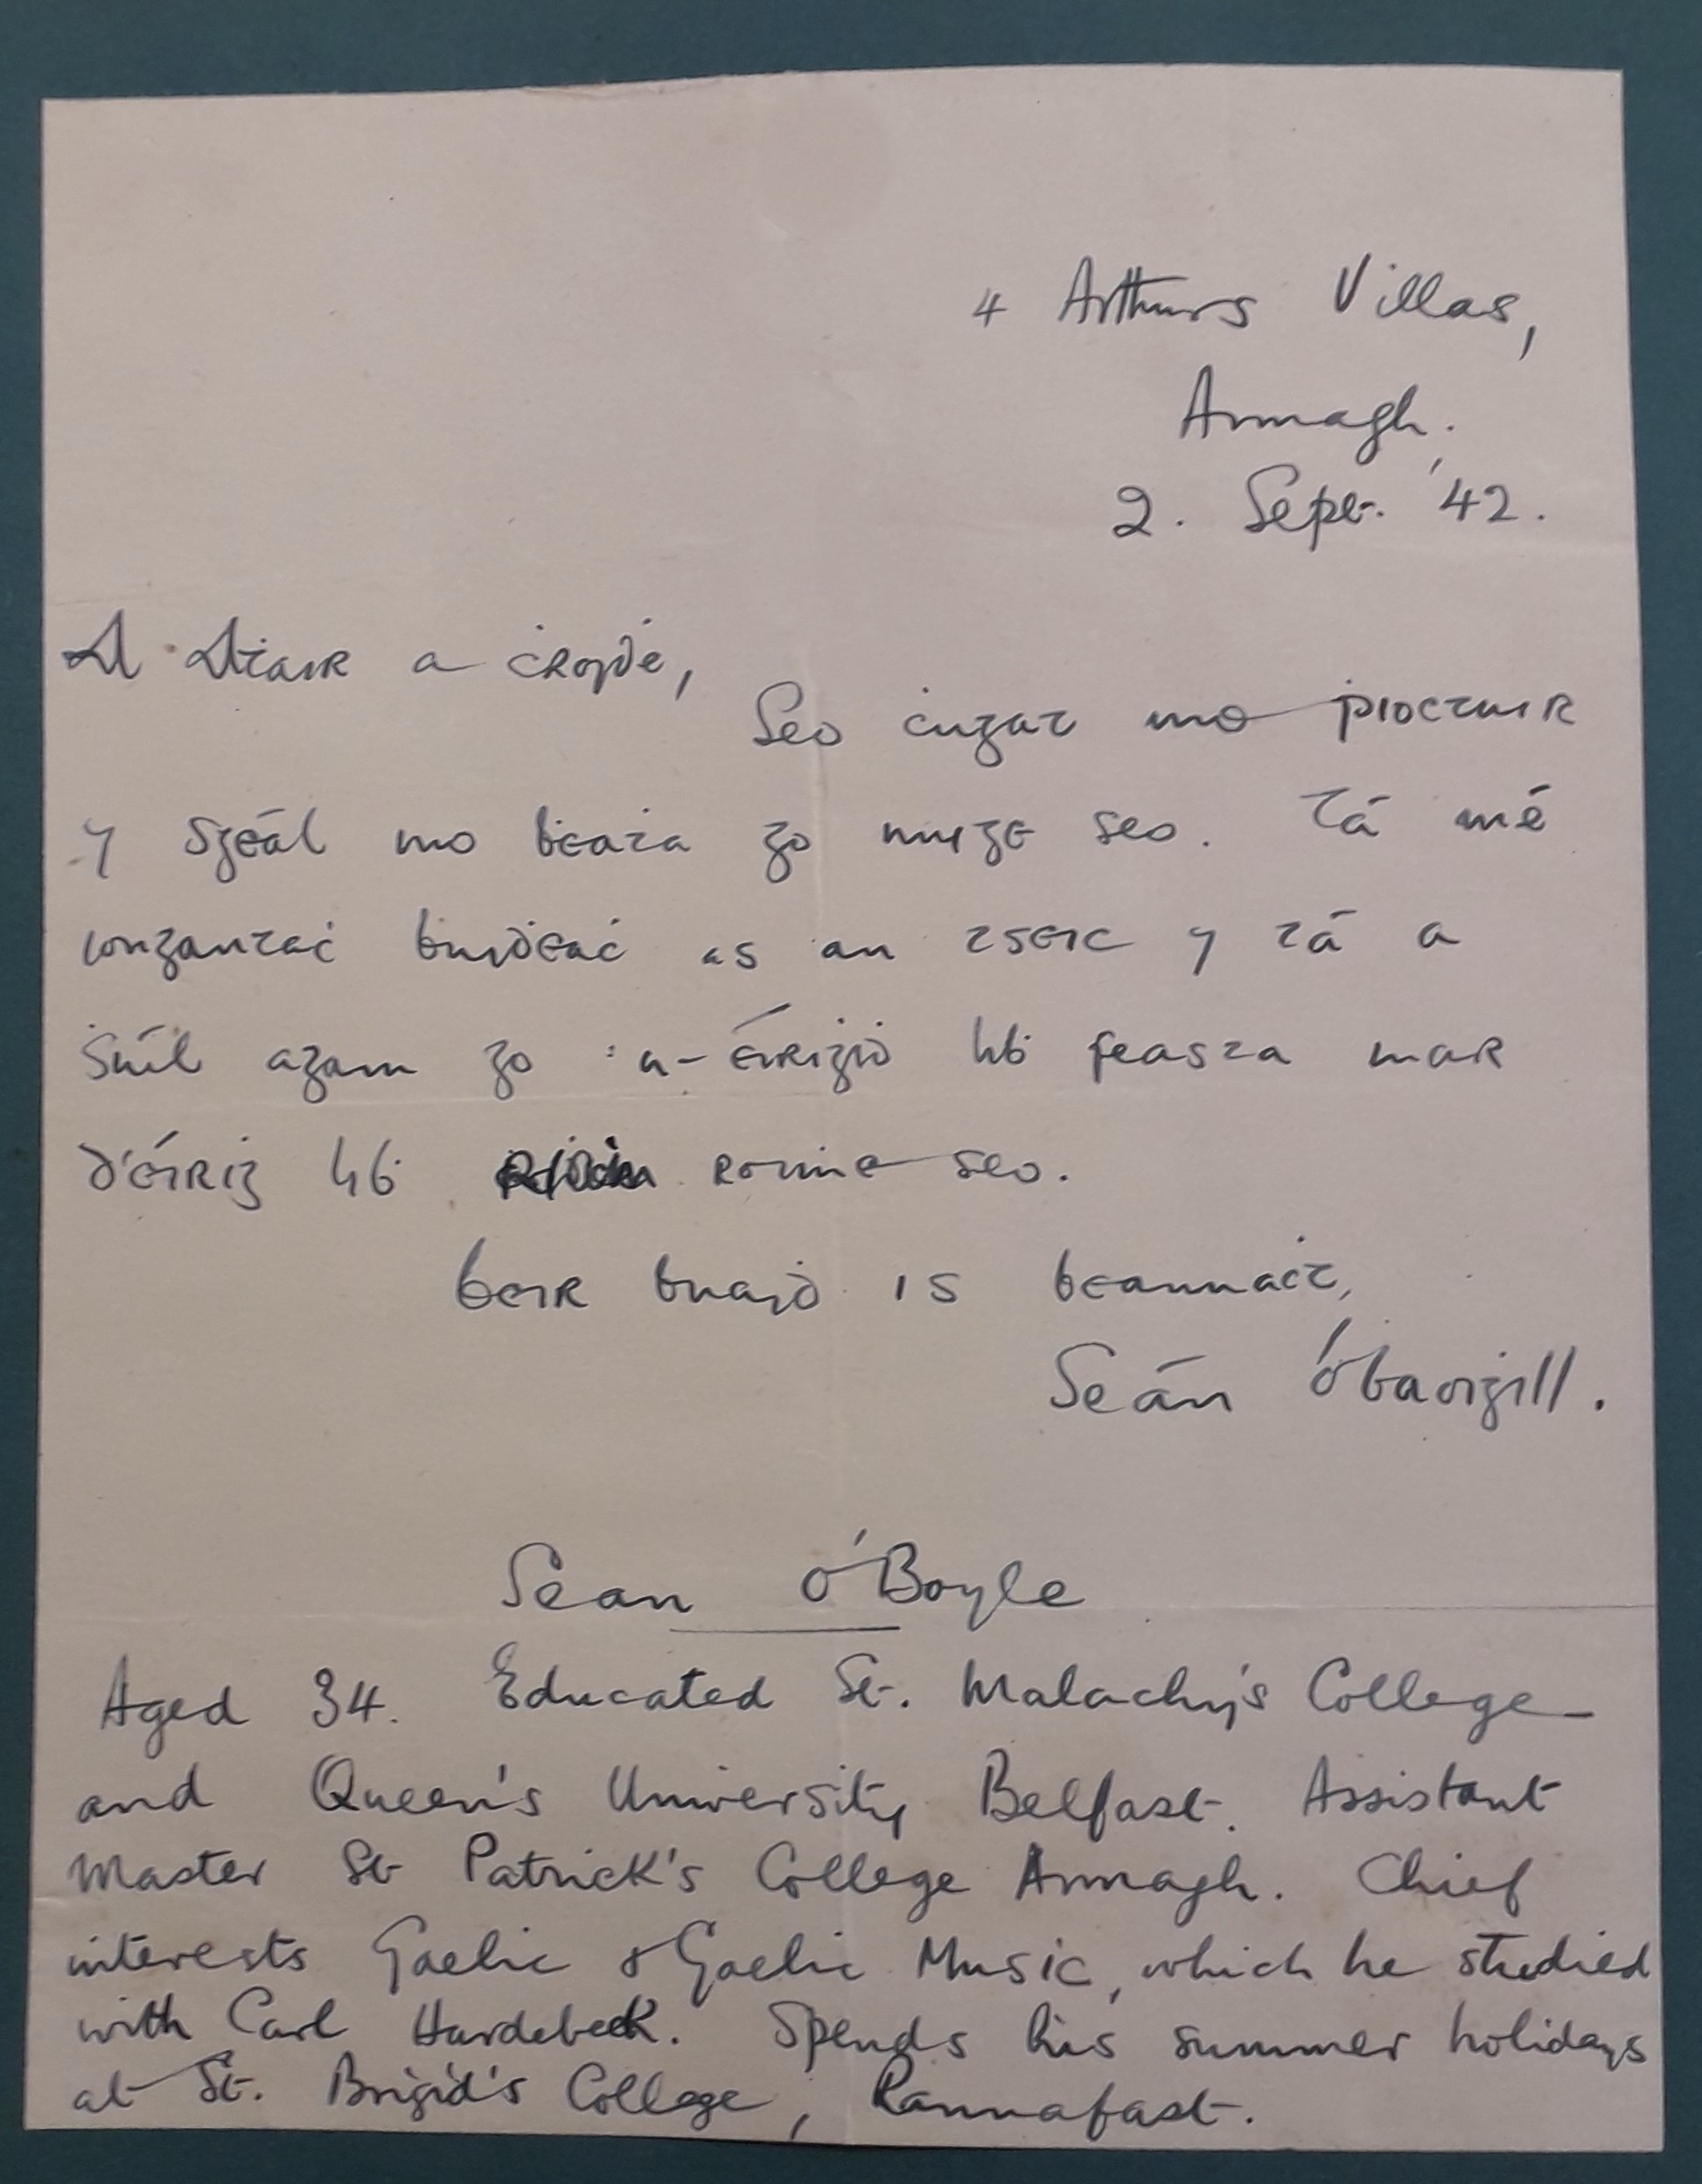 4 Arthurs Villas,
Armagh.
2. Sept. '42.
A Aṫair a ċroiḋe,
Seo ċugat mo ṗioctuir
⁊ sgéal mo ḃeaṫa go nuige seo. Tá mé
iongantaċ buiḋeaċ as an tseic ⁊ tá a
ṡúil agam go n-éiriġiḋ liḃ feasta mar
d'éiriġ liḃ roime seo.
beir buaiḋ is beannaċt,
Seán Ó baoiġill.
Sean O'Boyle
Aged 34. Educated St. Malachy's College
and Queen's University Belfast. Assistant
Master St Patrick's College Armagh. Chief
interests Gaelic & Gaelic Music, which he studied
with Carl Hardebeck. Spends his summer holidays
at St. Brigid's College, Rannafast.